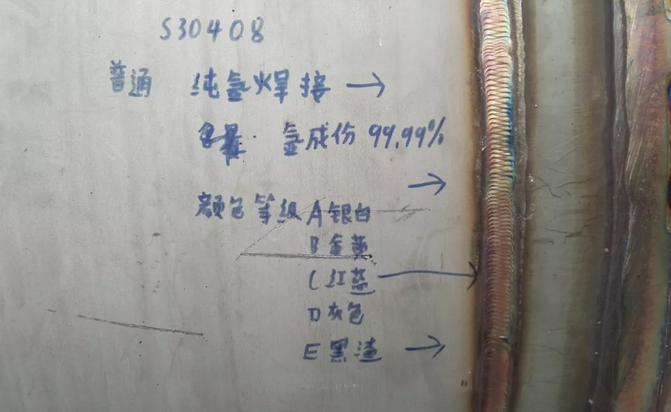 S30408
普通 纯氩焊接 →
含量. 氩成份 99.99%
→
颜色等级 A 银白
B 金黄
C 红蓝 →
D 灰色
E 黑渣 →